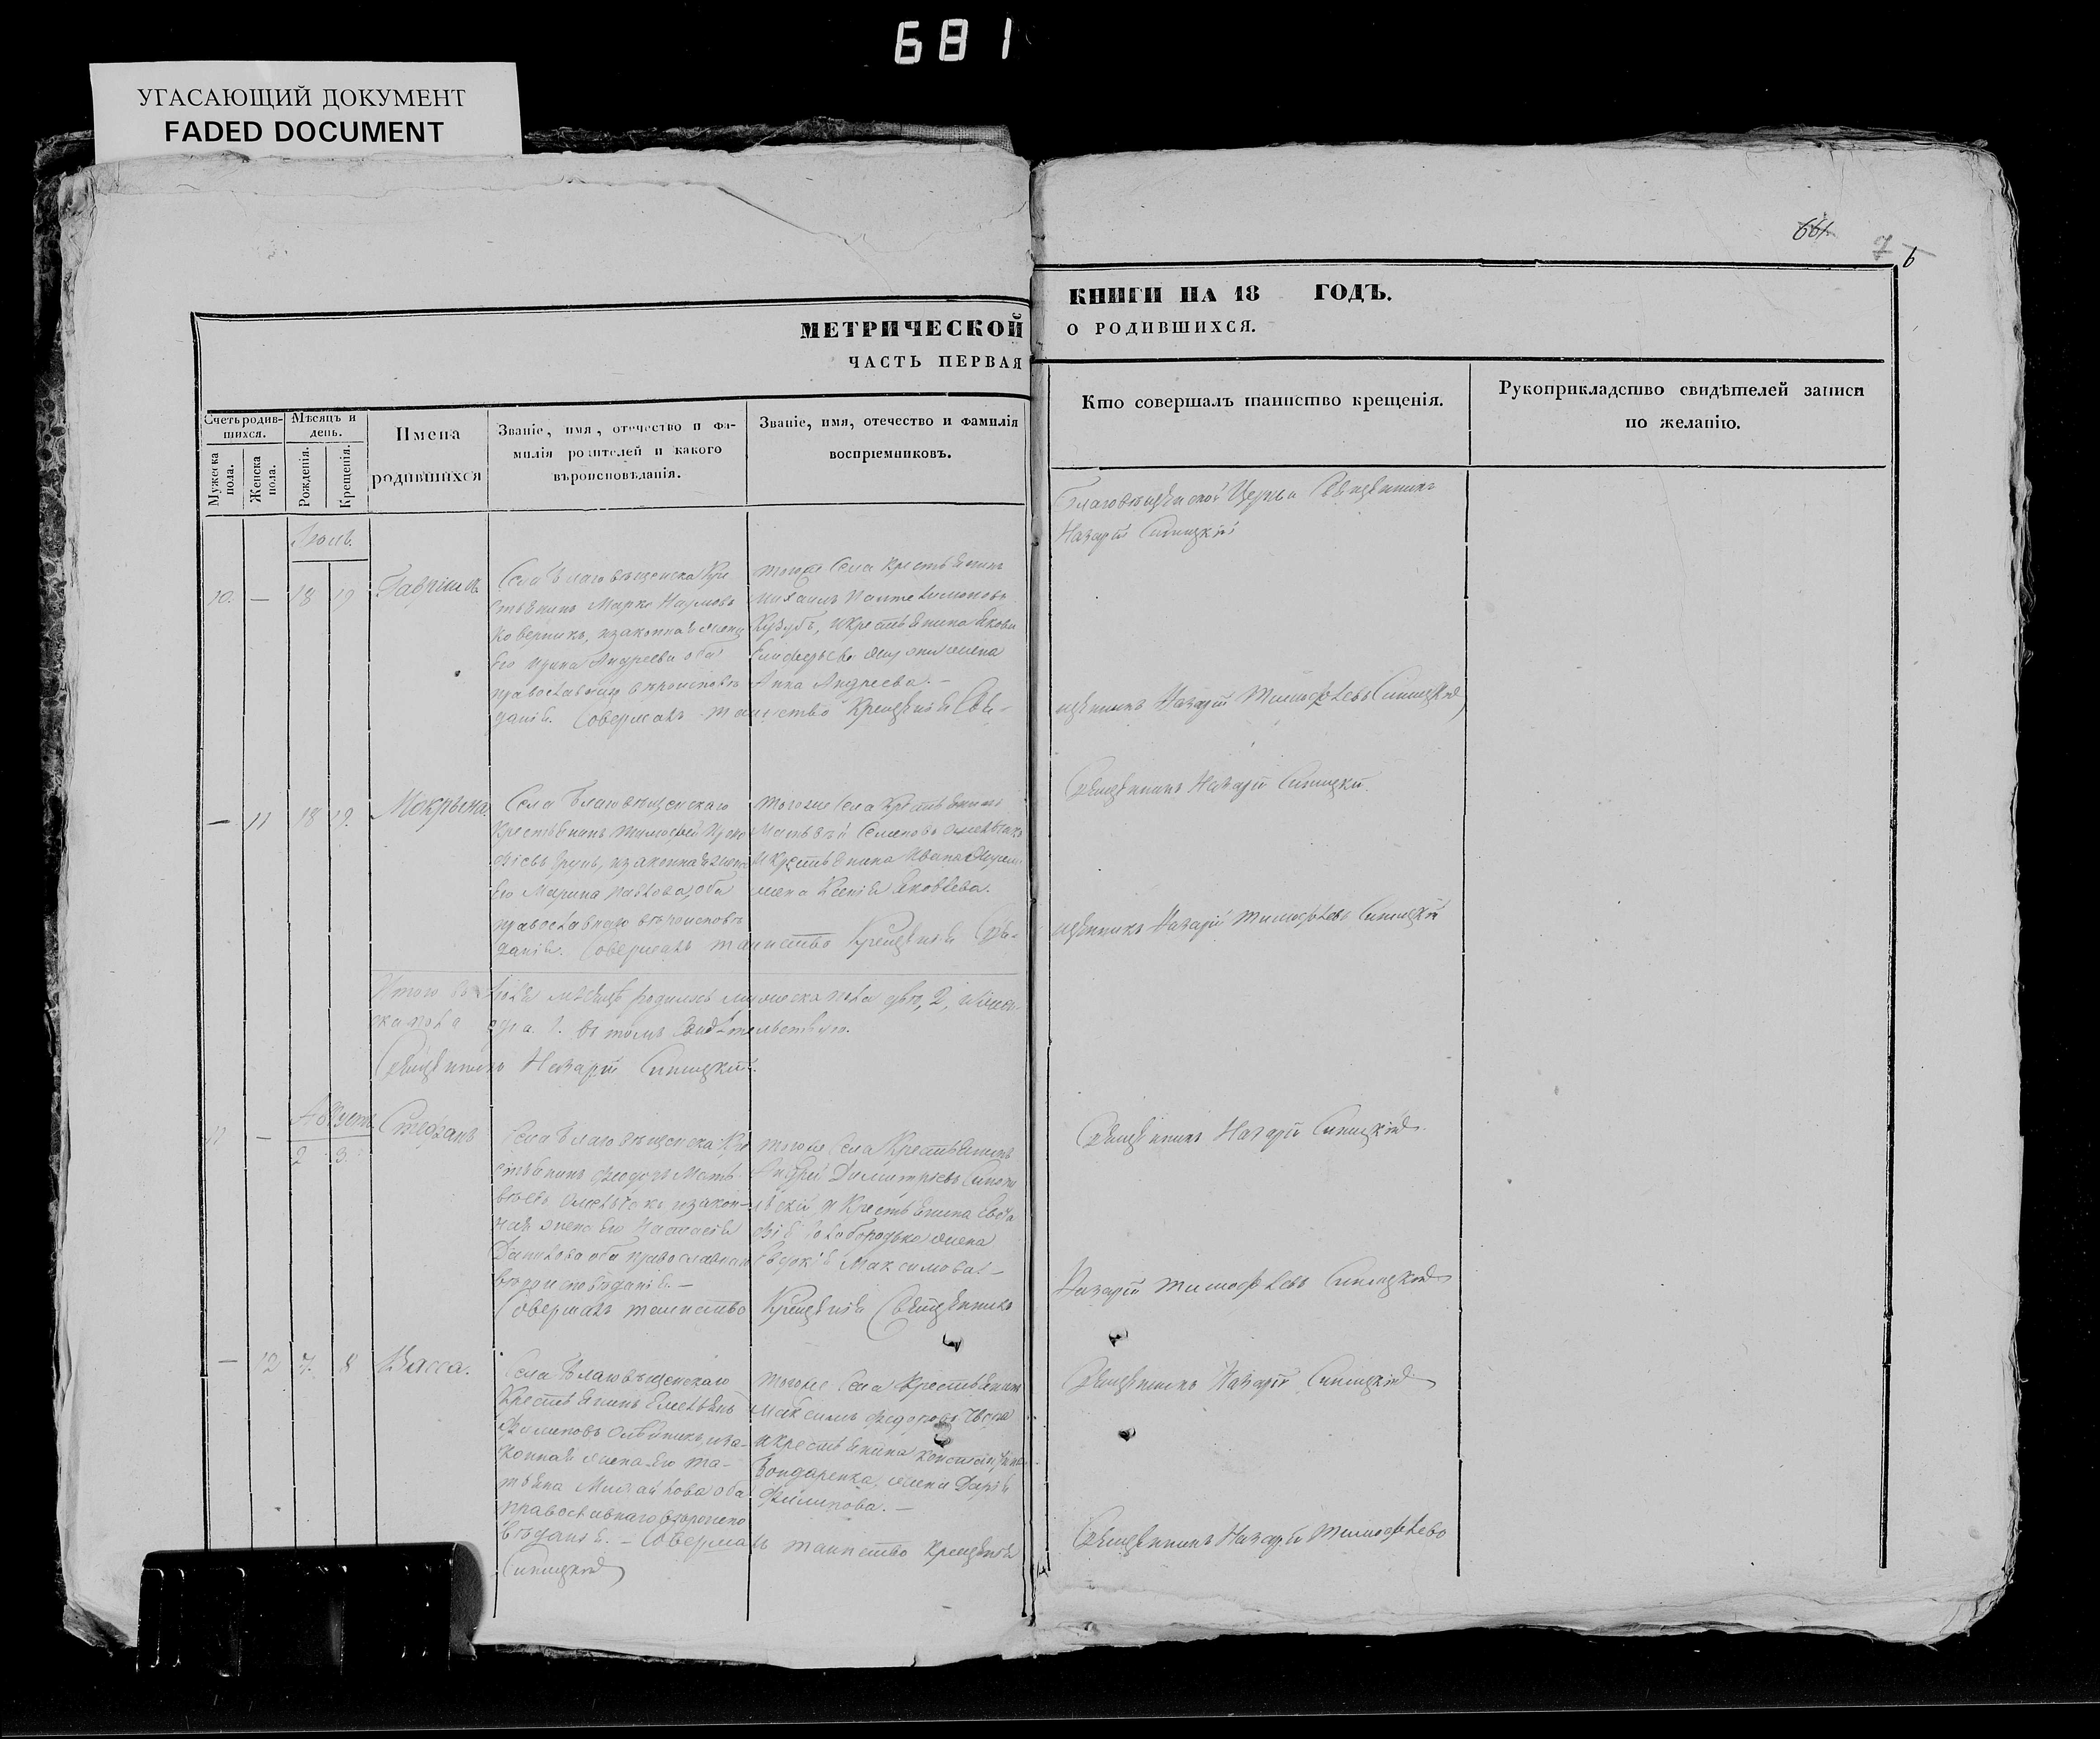 681
УГАСАЮЩИЙ ДОКУМЕНТ
FADED DOCUMENT
661
7 6
МЕТРИЧЕСКОЙ КНИГИ НА 18 ГОДЪ.
ЧАСТЬ ПЕРВАЯ О РОДИВШИХСЯ.
Счетъ родив-
шихся.
Мужеска пола.
Женска пола.
Мѣсяцъ и
день.
Рожденія.
Крещенія.
Имена
родившихся
Званіе, имя, отечество и фа-
милія родителей и какого
вѣроисповѣданія.
Званіе, имя, отечество и фамилія
воспріемниковъ.
Кто совершалъ таинство крещенія.
Рукоприкладство свидѣтелей записи
по желанію.
Благовѣщенской Церкви Священникъ
Назарій Синицкій
10. — 18 19 Гавріилъ
Села Благовѣщенска Кре
стьянинъ Марко Наумовъ
Коверникъ, изаконная жена
Его Ирина Андреева оба
православнаго вѣроисповѣ
данія. Совершалъ таинство Крещенія Свя-
тогоже Села Крестьянинъ
Михаилъ Пантелимоновъ
икрестьянина Якова
жена
Анна Андреева. —
щенникъ Назарій Тимофѣевъ Синицкій
— 11 18 19. Мокрына.
Села Благовѣщенскаго
Крестьянинъ Тимофей
изаконная жена
Его Марина Павлова, оба
православнаго вѣроисповѣ
данія. Совершалъ таинство Крещенія Свя-
Тогоже Села Крестьянинъ
Матвѣй Семеновъ
и Крестьянина Ивана
жена Ксенія Яковлева.
Священникъ Назарій Синицкій.
щенникъ Назарій Тимофѣевъ Синицкій
Итого въ Іюлѣ мѣсяцѣ родилось мужеска пола два, 2, и жен-
ска пола одна. 1. Въ томъ Свидѣтельствую.
Священникъ Назарій Синицкій.
Августъ
11 — 2 3. Стефанъ
Села Благовѣщенска Кре
стьянинъ Феодоръ Матъ-
вѣевъ изакон-
ная жена его Настасія
Данилова оба православнаго
вѣроисповѣданія. —
Совершалъ таинство Крещенія Священникъ
тогоже Села Крестьянинъ
Андрей Димитріевъ
и Крестьянина
жена
Максимова. —
Священникъ Назарій Синицкій.
Назарій Тимофѣевъ Синицкій
— 12 7. 8 Васса.
Села Благовѣщенскаго
Крестьянинъ Емельянъ
Филиповъ иза-
конная жена Его Та-
тьяна Михайлова оба
православнаго вѣроиспо
вѣданія. — Совершалъ таинство Крещенія
Синицкій
тогоже Села Крестьянинъ
Максимъ Федоровъ
икрестьянина
Бондаренка, жена Дарія
Филипова. —
Священникъ Назарій Синицкій
Священникъ Назарій Тимофѣевъ